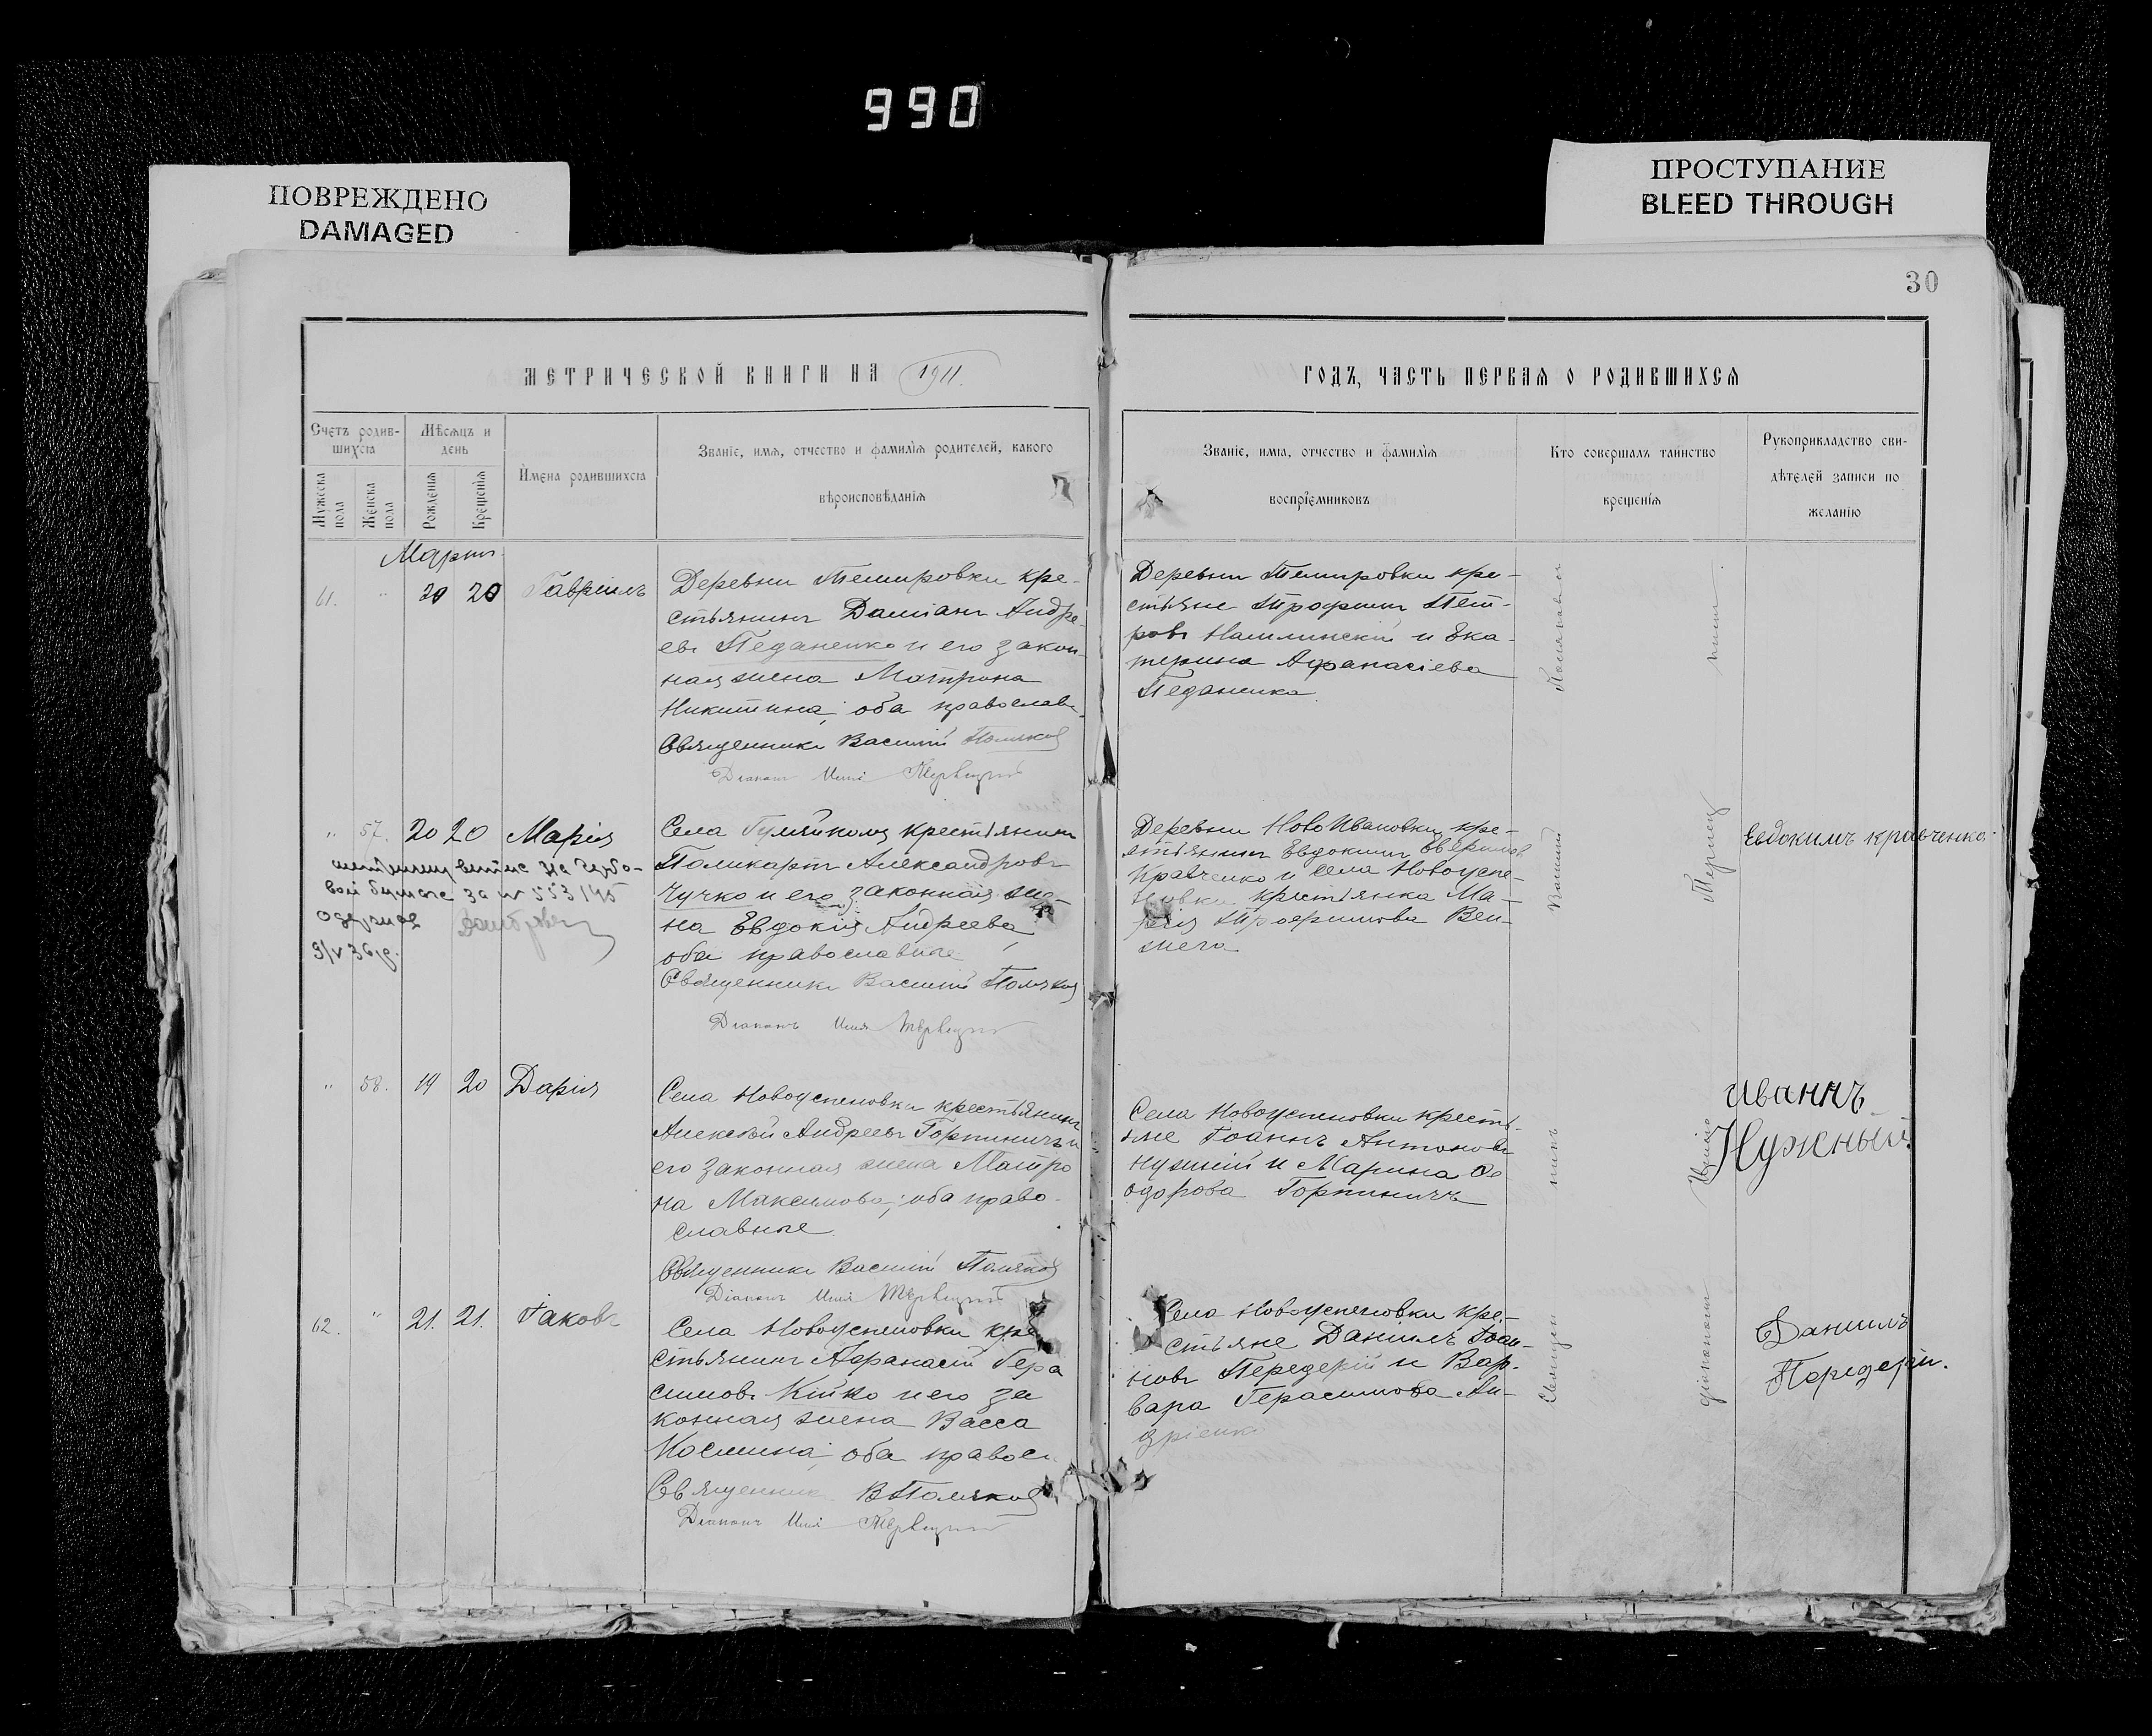 990
ПОВРЕЖДЕНО
DAMAGED
ПРОСТУПАНИЕ
BLEED THROUGH
30
МЕТРИЧЕСКОЙ КНИГИ НА 1911.
ГОДЪ, ЧАСТЬ ПЕРВАЯ О РОДИВШИХСЯ
Счетъ родив-
шихся
Мужеска пола
Женска пола
Мѣсяцъ и
день
Рожденія
Крещенія
Имена родившихся
Званіе, имя, отчество и фамилія родителей, какого
вѣроисповѣданія
Званіе, имя, отчество и фамилія
воспріемниковъ
Кто совершалъ таинство
крещенія
Рукоприкладство сви-
дѣтелей записи по
желанію
Мартъ
61. " 20 20 Гавріилъ
Деревни Темировки кре-
стьянинъ Даміанъ Андре-
евъ Педаненко и его закон-
ная жена Матрона
Никитина; оба православн.
Священникъ Василій Поляковъ
Діаконъ Илія
Деревни Темировки кре-
стьяне Трофимъ Пет-
ровъ и Ека-
терина Афанасіева
Педаненко
" 57. 20 20 Марія
вой бумаге за № 553/145
Села Гуляйполя крестьянинъ
Поликарпъ Александровъ
Чучко и его законная же-
на Евдокія Андреева,
оба православные
Священникъ Василій Поляковъ
Діаконъ Илія
Деревни Ново Ивановки кре-
стьянинъ Евдокимъ
Кравченко и села Новоуспе-
новки крестьянка Ма-
рія Трофимова
Евдокимъ кравченко.
" 58. 19 20 Дарія
Села Новоуспеновки крестьянинъ
Алексѣй Андреевъ Горпиничъ и
его законная жена Матро
на Максимова; оба право-
славные
Священникъ Василій Поляковъ
Діаконъ Илія
Села Новоуспеновки кресть-
яне Іоаннъ Антоновъ
Нужный и Марина Ѳе
одорова Горпиничъ
Иваннъ
Нужный.
62. " 21. 21. Іаковъ
Села Новоуспеновки кре-
стьянинъ Афанасій Гера
симовъ Кійко и его за
конная жена Васса
Космина; оба правосл.
Священникъ В Поляковъ
Діаконъ Илія
Села Новоуспеновки кре-
стьяне Даніилъ Іоан-
новъ Передерій и Вар-
вара Герасимова Ан-
дріенко
Даниилъ
Передерій.
Священ
никъ
Василій
Поляковъ
діакономъ
Иліею